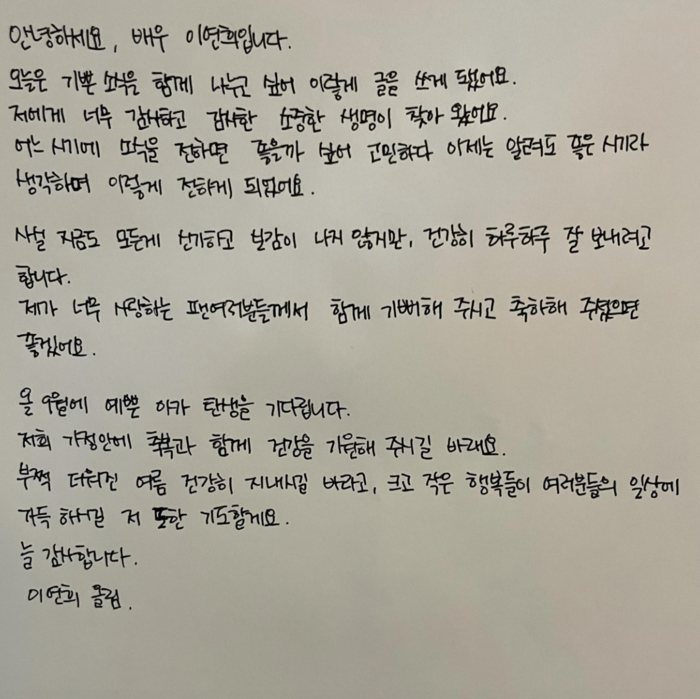 안녕하세요, 배우 이연희입니다.
오늘은 기쁜 소식을 함께 나누고 싶어 이렇게 글을 쓰게 됐어요.
저에게 너무 감사하고 감사한 소중한 생명이 찾아 왔어요.
어느 시기에 소식을 전하면 좋을까 싶어 고민하다 이제는 알려도 좋은 시기라
생각하며 이렇게 전하게 되었어요.
사실 지금도 모든게 신기하고 실감이 나지 않지만, 건강히 하루하루 잘 보내려고
합니다.
제가 너무 사랑하는 팬여러분들께서 함께 기뻐해 주시고 축하해 주셨으면
좋겠어요.
올 9월에 예쁜 아가 탄생을 기다립니다.
저희 가정안에 축복과 함께 건강을 기원해 주시길 바래요.
부쩍 더워진 여름 건강히 지내시길 바라고, 크고 작은 행복들이 여러분들의 일상에
가득 하시길 저 또한 기도할게요.
늘 감사합니다.
이연희 올림.